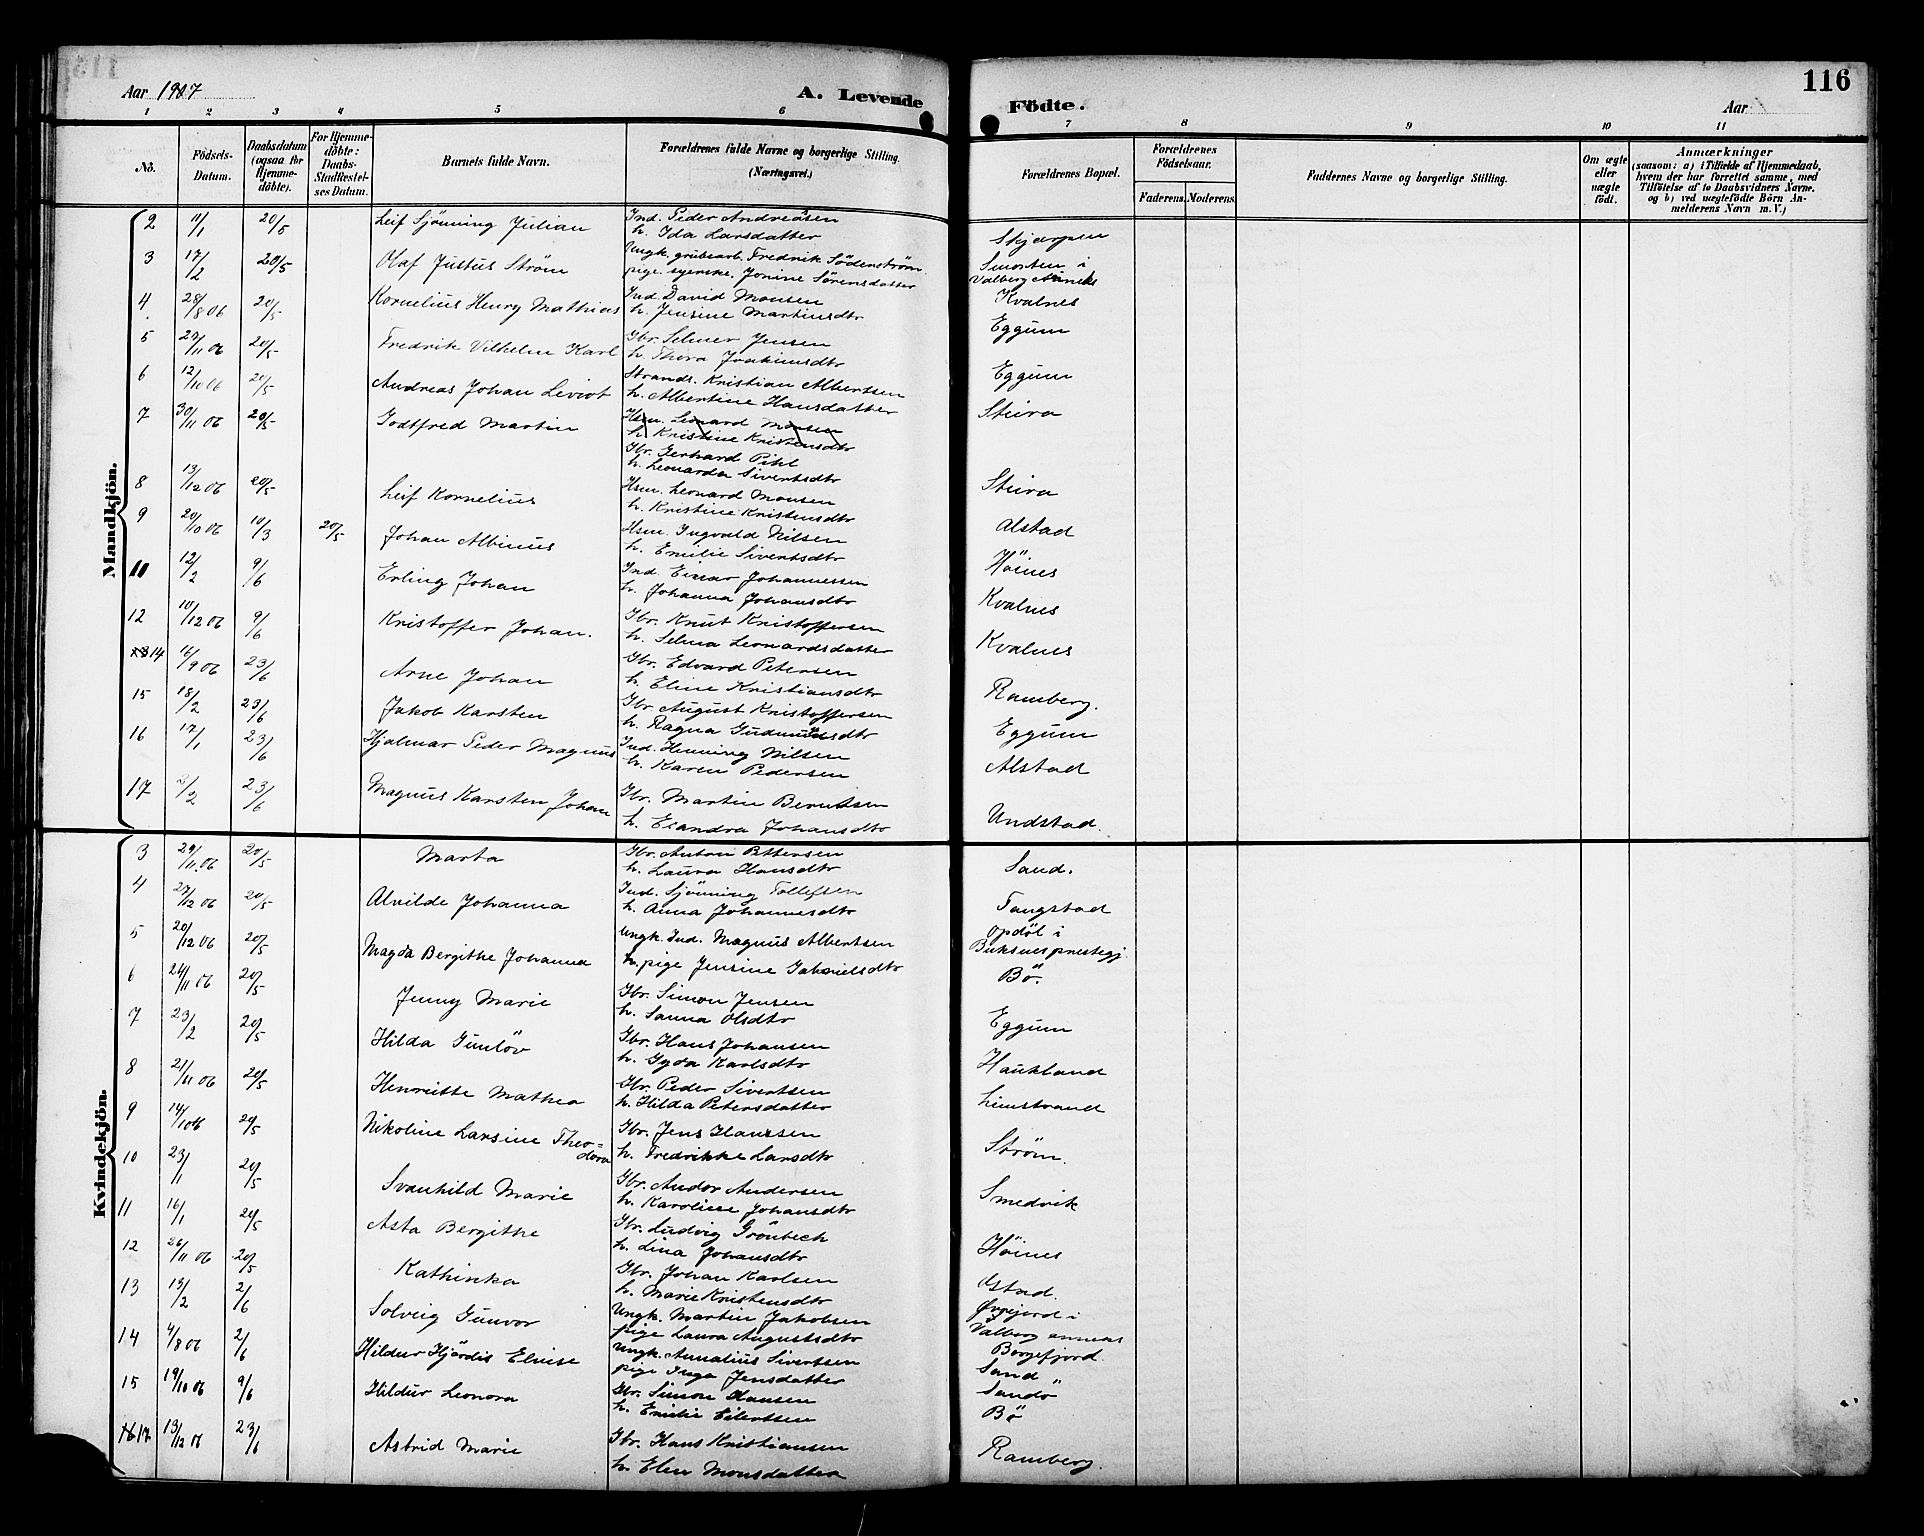 Aar 1907 A. Levende Födte. Aar 116
1 2 3 4 5 6 7 8 9 10 11
No. Födsels-Datum. Daabsdatum (ogsaa for Hjemme-döbte). For Hjemme-döbte: Daabs-Stadfæstel-ses Datum. Barnets fulde Navn. Forældrenes fulde Navne og borgerlige Stilling. (Næringsvei.) Forældrenes Bopæl. Forældrenes Födselsaar. Faderens. Moderens. Faddernes Navne og borgerlige Stilling. Om ægte eller uægte födt. Anmærkninger (saasom: a) i Tilfælde af Hjemmedaab, hvem der har forrettet samme, med Tilföielse af to Daabsvidners Navne, og b) ved uægtefödte Börn An-melderens Navn m. V.)
Mandkjön.
2 11/1 20/5 Leif Sjönning Julian Ind. Peder Andreasen Skjerpen
h. Ida Larsdatter
3 17/2 20/5 Olaf Justus Ström Ungk. grubearb. Fredrik Söderström Smorten i
pige syerske, Jonine Sörensdatter Valberg Annex
4 28/8 06 20/5 Kornelius Henry Mathias Ind. David Monsen Kvalnes
h. Jensine Martinsdtr
5 27/11 06 20/5 Fredrik Vilhelm Karl Gbr. Selmer Jensen Eggum
h. Thora Joakimsdtr
6 12/10 06 20/5 Andreas Johan Leviot Strands. Kristian Albertsen Eggum
h. Albertine Hansdatter
7 30/11 06 20/5 Godtfred Martin Hsm. Leonard Monsen Steira
h. Kristine Kristensdtr
Gbr. Gerhard Pihl
h. Leonarda Sivertsdtr
8 13/12 06 20/5 Leif Kornelius Hsm. Leonard Monsen Steira
h. Kristine Kristensdtr
9 20/10 06 10/3 20/5 Johan Albinus Hsm. Ingvald Nilsen Alstad
h. Emilie Sivertsdtr
10 12/2 9/6 Erling Johan Ind. Einar Johannessen Höines
h. Johanna Johansdtr
12 10/12 06 9/6 Kristoffer Johan. Gbr. Knut Kristoffersen Kvalnes
h. Selma Leonardsdatter
14 16/9 06 23/6 Arne Johan Gbr. Edvard Petersen Kvalnes
h. Eline Kristiansdtr
15 18/2 23/6 Jakob Karsten Gbr. August Kristoffersen Ramberg.
h. Ragna Gudmundsdtr
16 17/1 23/6 Hjalmar Peder Magnus Ind. Henning Nilsen Eggum
h. Karen Pedersen Alstad
17 2/2 23/6 Magnus Karsten Johan Gbr. Martin Berntsen Undstad.
h. Elandra Johansdtr
Kvindekjön.
3 29/11 06 20/5 Marta Gbr. Anton Pettersen Sand.
h. Laura Hansdtr
4 27/12 06 20/5 Alvilde Johanna Ind. Sjönning Tollefsen Tangstad
h. Anna Johannesdtr
5 20/12 06 20/5 Magda Bergithe Johanna Ungk. Ind. Magnus Albertsen Opdöl i
h. pige Jensine Gabrielsdtr Buksnes prestegj.
6 24/11 06 20/5 Jenny Marie Gbr. Simon Jensen Bö.
h. Sanna Olsdtr
7 23/2 20/5 Hilda Gunlöv Gbr. Hans Johansen Eggum
h. Gyda Karlsdtr
8 21/11 06 20/5 Henriette Mathea Gbr. Peder Sivertsen Haukland
h. Hilda Petersdatter
9 14/10 06 20/5 Nikoline Larsine Theo= Gbr. Jens Hansen Limstrand
dora h. Fredrikke Larsdtr
10 23/1 20/5 Svanhild Marie Gbr. Andor Andersen Ström.
h. Karoline Johansdtr
11 16/1 20/5 Asta Bergithe Gbr. Ludvig Grönbech Smedvik
h. Lina Johansdtr
12 26/11 06 20/5 Kathinka Gbr. Johan Karlsen Höines
h. Marie Kristensdtr
13 13/2 2/6 Solveig Gunvor Ungk. Martin Jakobsen Ostad.
pige Laura Augustsdtr i Valberg annex
14 4/8 06 2/6 Hildur Hjördis Elvise Ungk. Annalius Sivertsen Borgefjord.
pige Inga Jensdatter Sand
15 19/10 06 9/6 Hildur Leonora Gbr. Simon Hansen Sandö
h. Emilie Eilertsen Bö
17 13/12 06 23/6 Astrid Marie Gbr. Hans Kristiansen Ramberg.
h. Elen Monsdatter